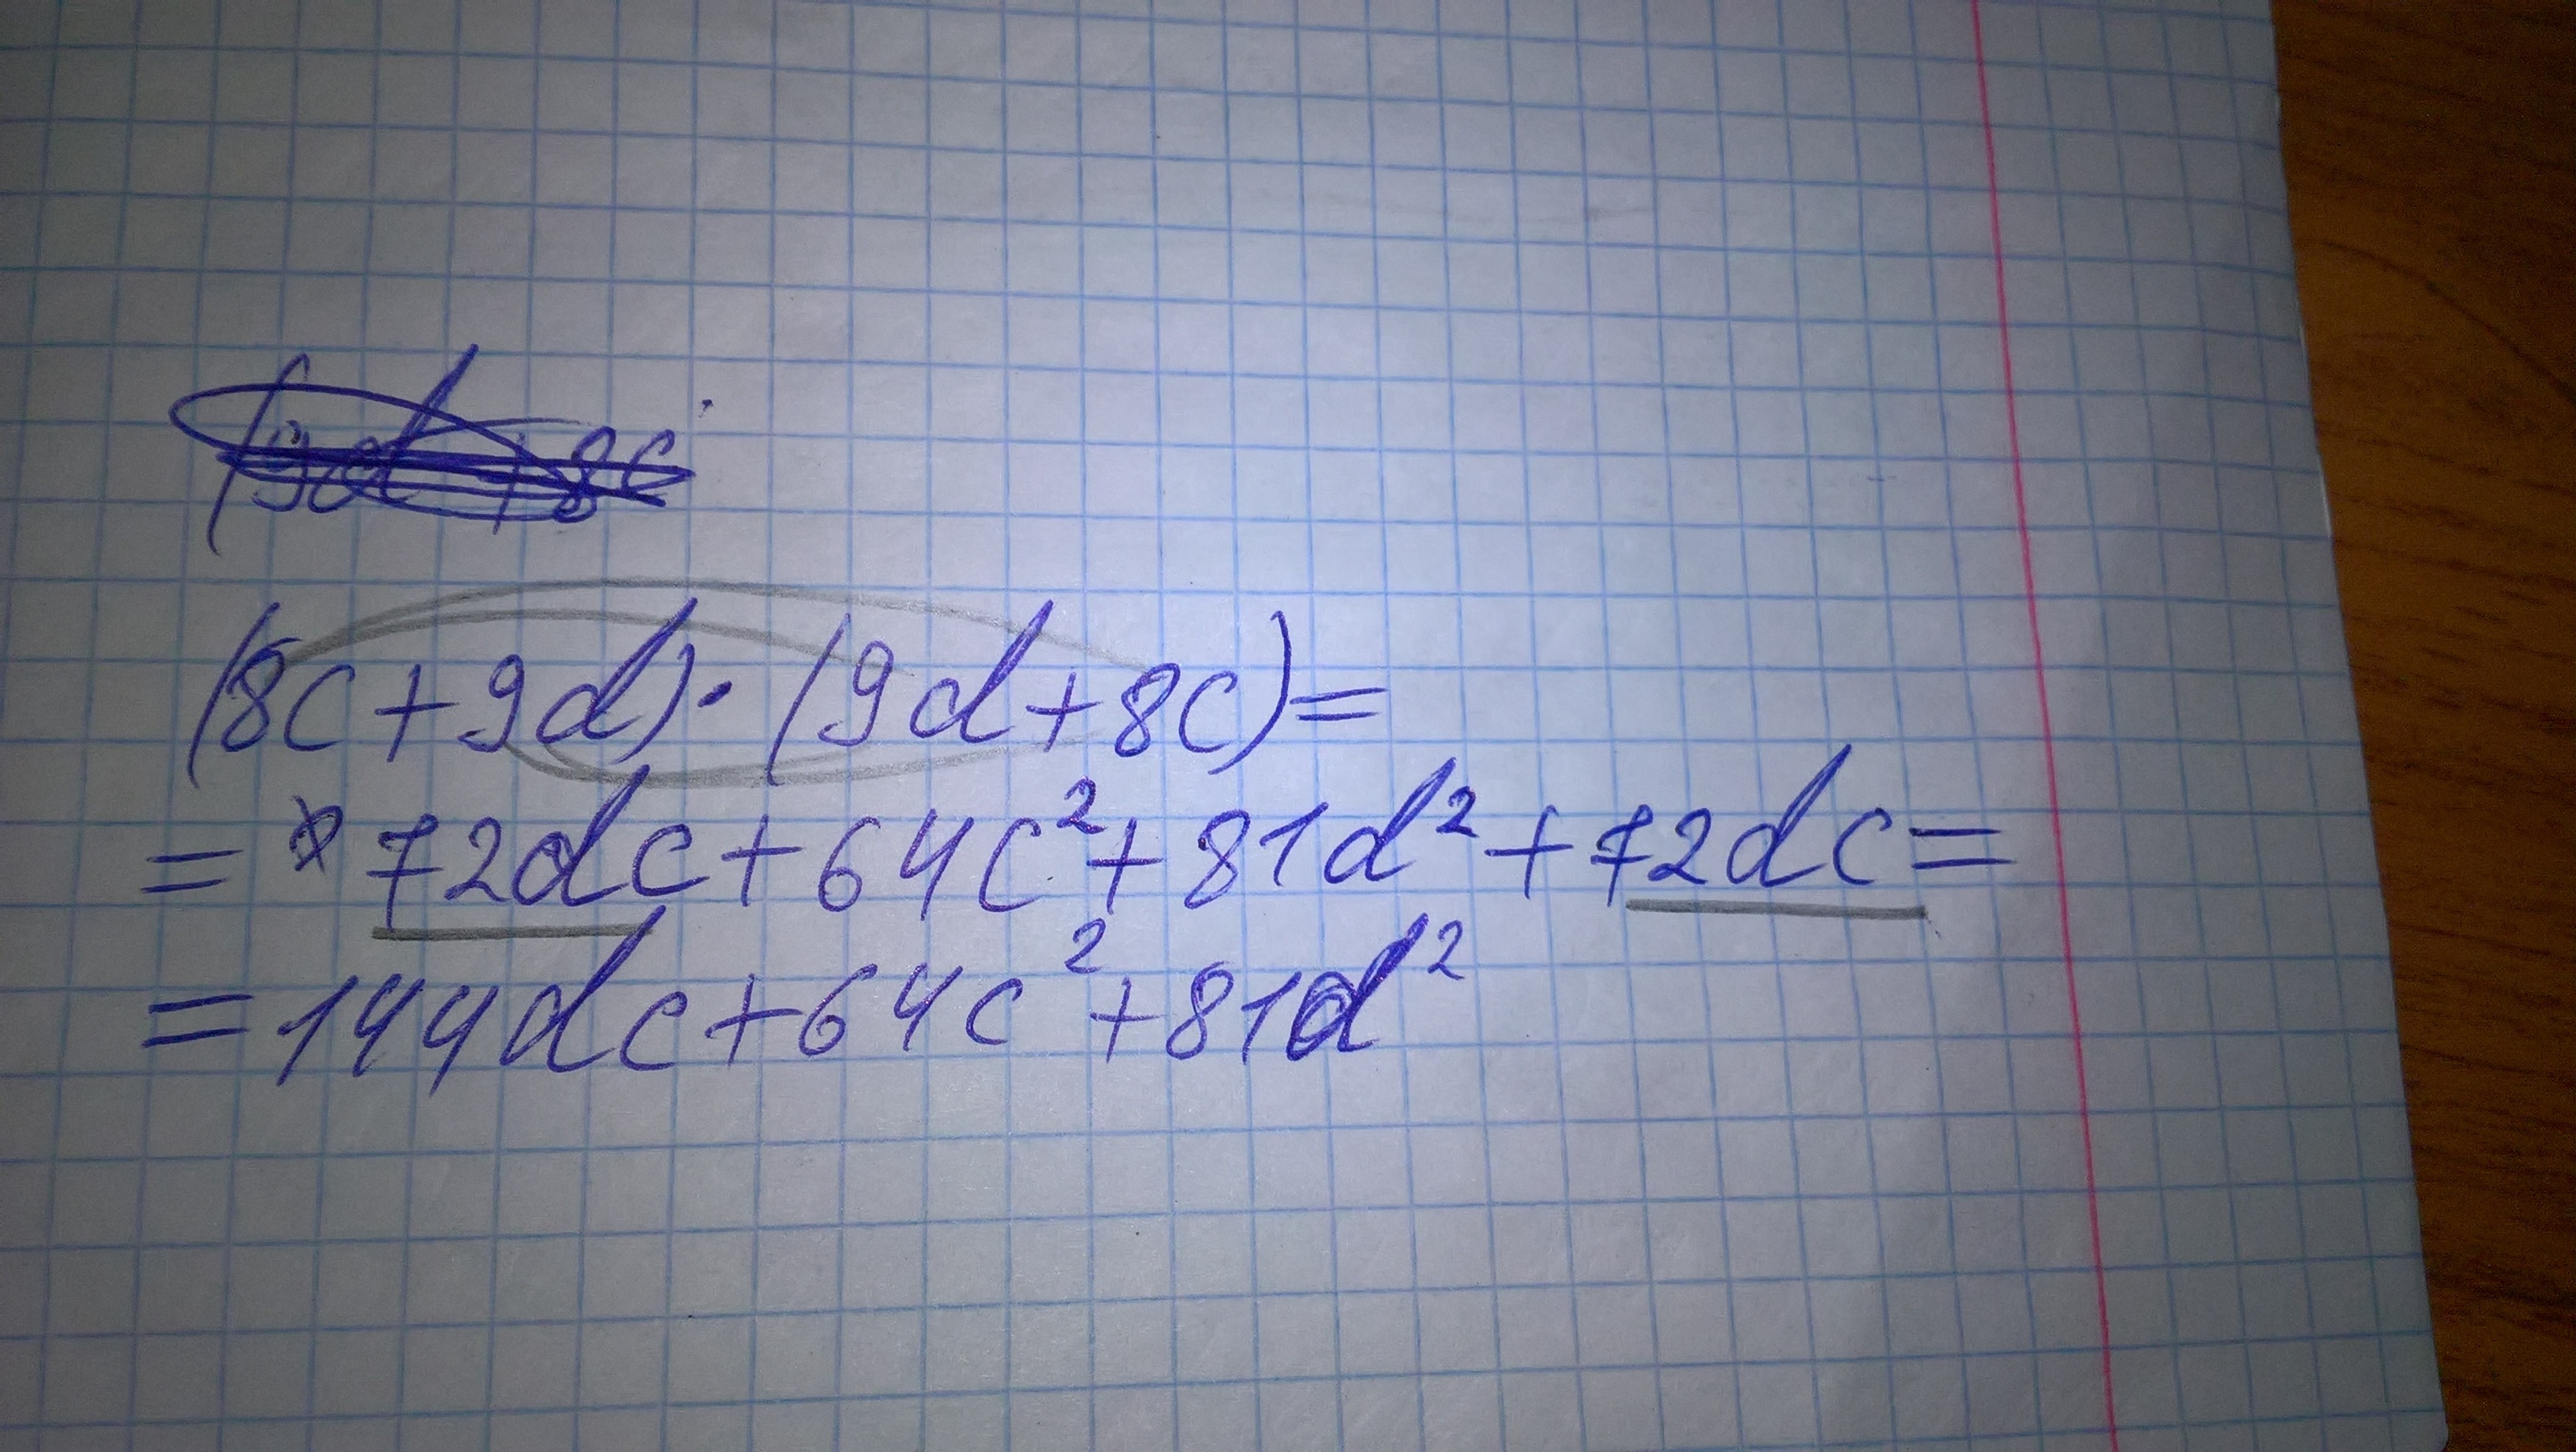 (9d+8c
(8c+9d)·(9d+8c)=
=72dc+64c²+81d²+72dc=
=144dc+64c²+81d²